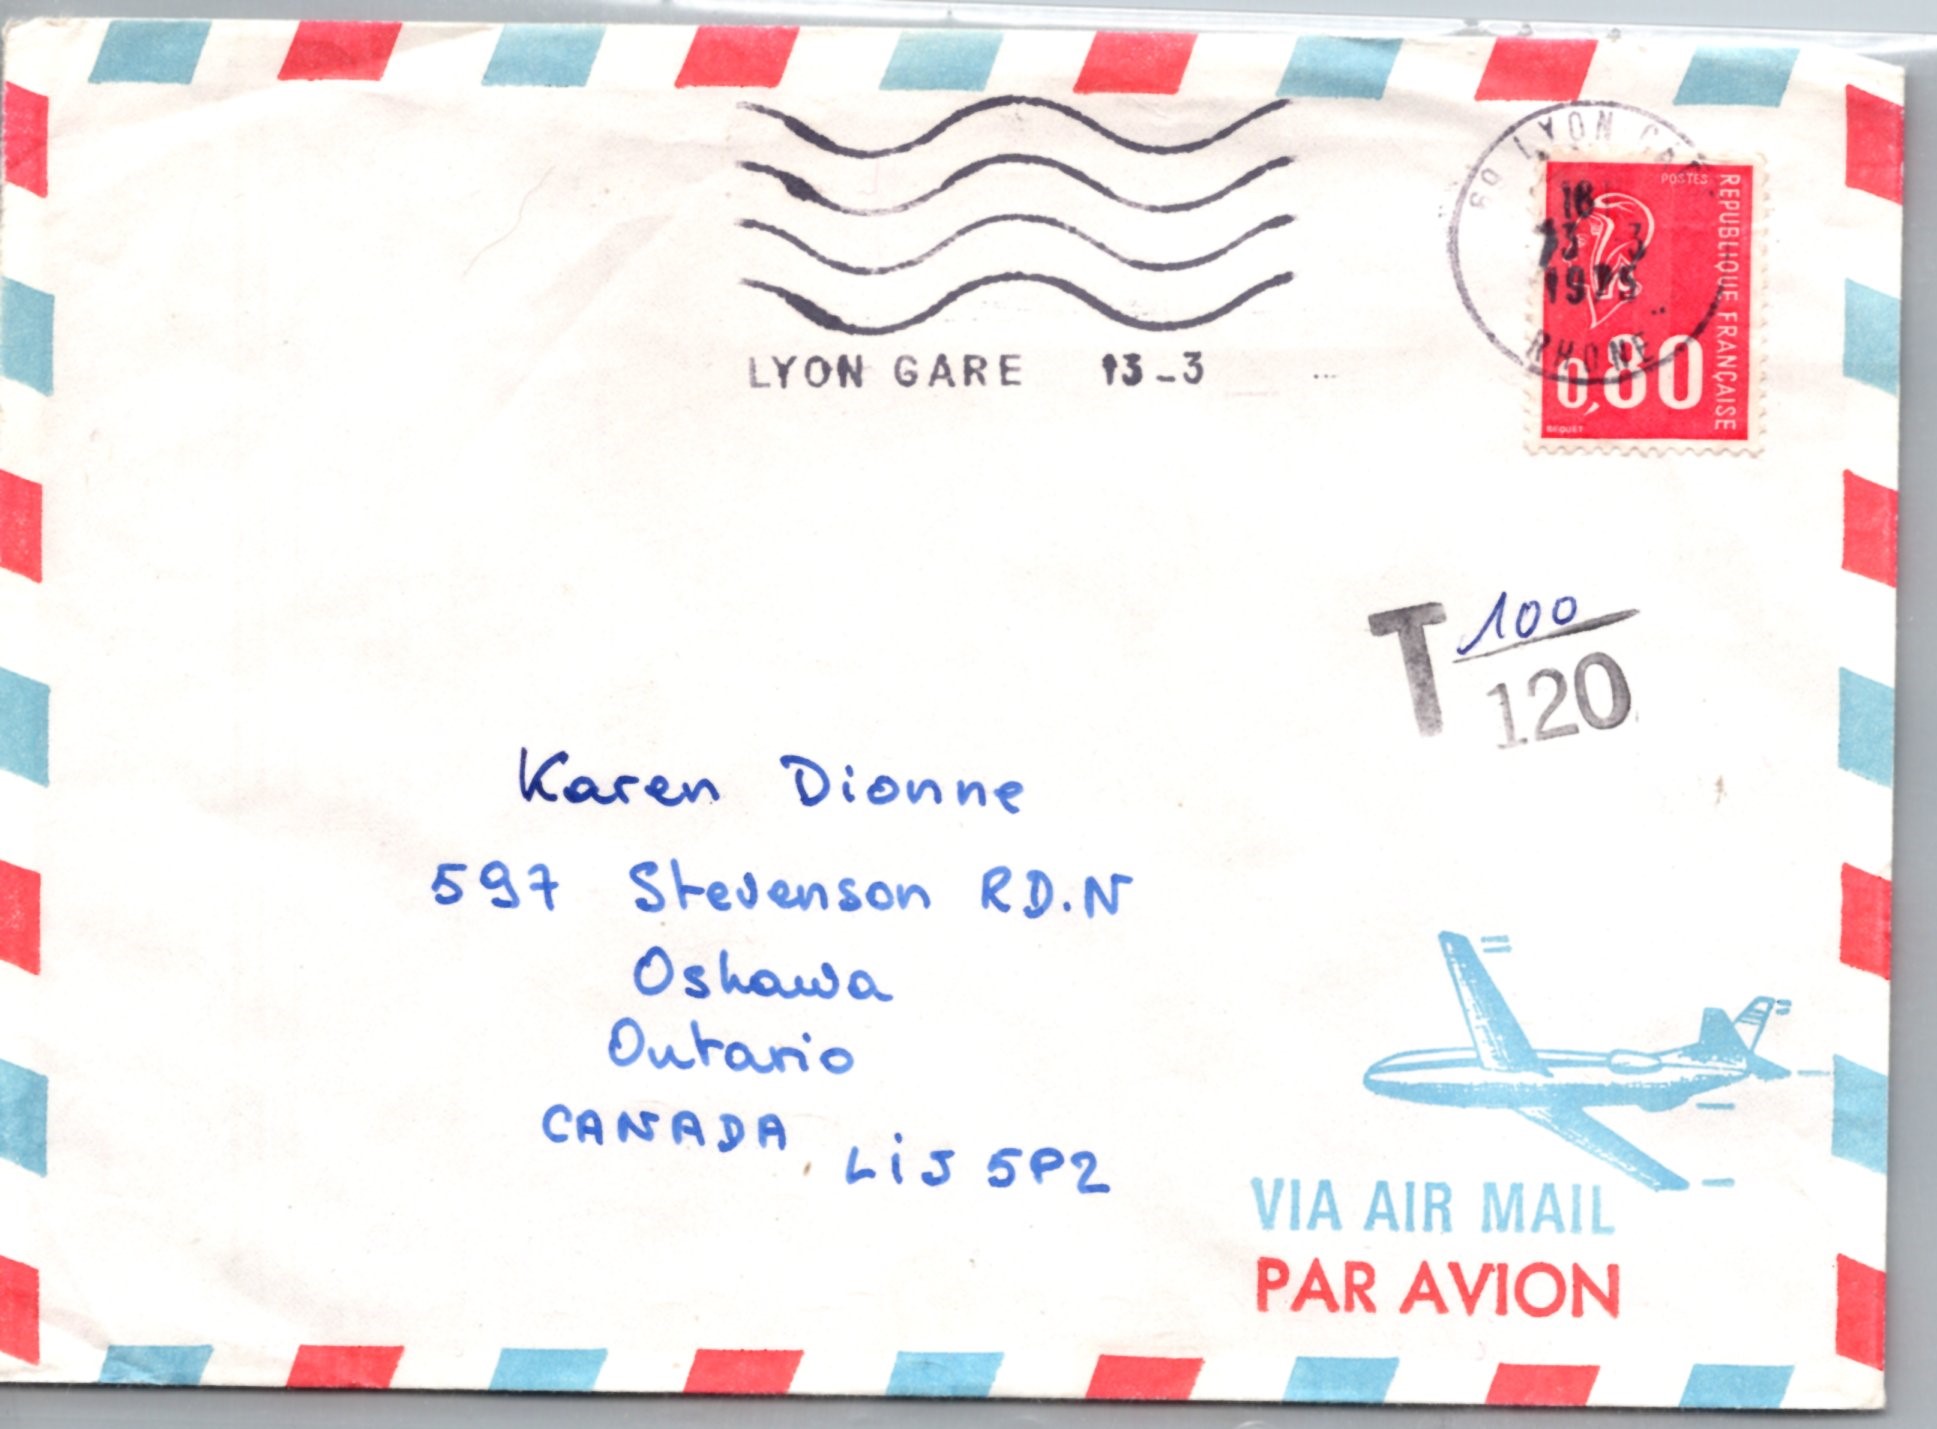 LYON GARE 13-3
69 LYON GARE
18
13 3
1975
RHONE
POSTES
REPUBLIQUE FRANÇAISE
0,80
BEQUET
T 100
120
Karen Dionne
597 Stevenson RD.N
Oshawa
Ontario
CANADA
L1J 5P2
VIA AIR MAIL
PAR AVION